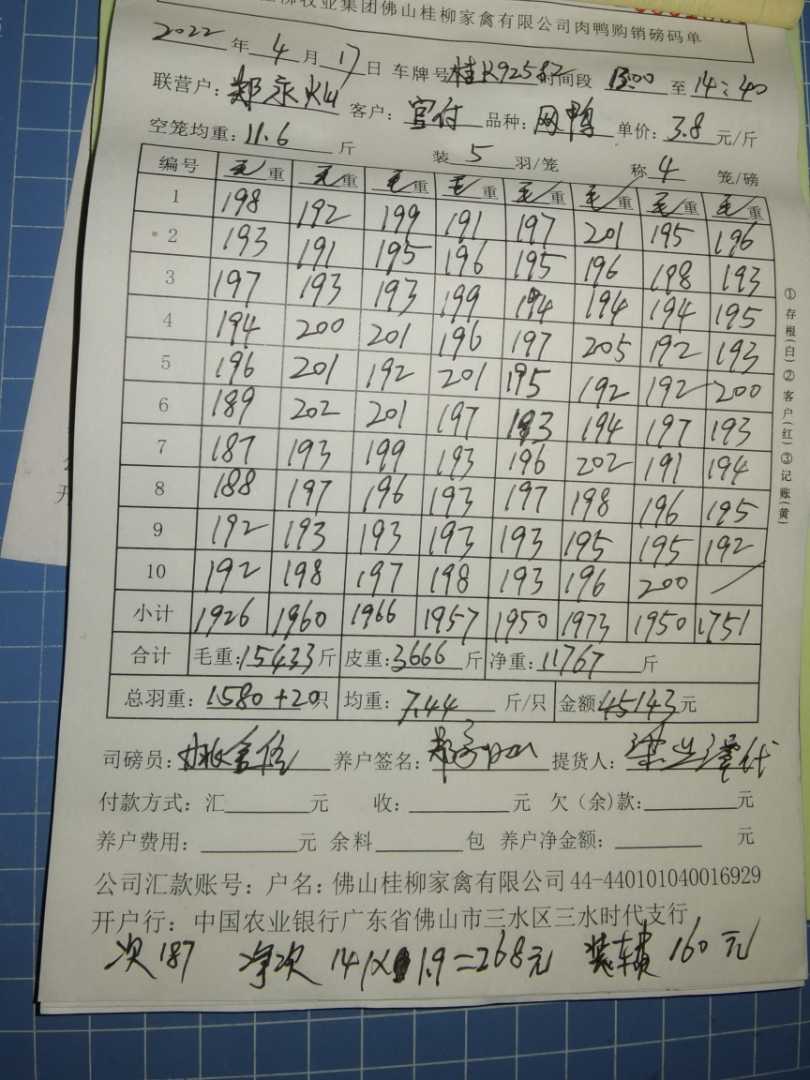 牧业集团佛山桂柳家禽有限公司肉鸭购销磅码单
2022 年 4 月 17 日 车牌号 桂K92587 时间段 13:00 至 14:40
联营户: 郑永灿 客户: 官付 品种: 网鸭 单价: 3.8 元/斤
空笼均重: 11.6 斤 装 5 羽/笼 称 4 笼/磅
编号 毛重 毛重 毛重 毛重 毛重 毛重 毛重 毛重
1 198 192 199 191 197 201 195 196
2 193 191 195 196 195 196 198 193
3 197 193 193 199 194 194 194 195
4 194 200 201 196 197 205 192 193
5 196 201 192 201 195 192 192 200
6 189 202 201 197 193 194 197 193
7 187 193 199 193 196 202 191 194
8 188 197 196 193 197 198 196 195
9 192 193 193 193 193 195 195 192
10 192 198 197 198 193 196 200 /
小计 1926 1960 1966 1957 1950 1973 1950 1751
合计 毛重: 15433 斤 皮重: 3666 斤 净重: 11767 斤
总羽重: 1580+20 只 均重: 7.44 斤/只 金额 45143 元
司磅员: 养户签名: 提货人:
付款方式: 汇 元 收: 元 欠(余)款: 元
养户费用: 元 余料 包 养户净金额: 元
公司汇款账号: 户名: 佛山桂柳家禽有限公司 44-440101040016929
开户行: 中国农业银行广东省佛山市三水区三水时代支行
次187 净次 141×1.9=268元 装车费 160元
①存根(白)②客户(红)③记账(黄)